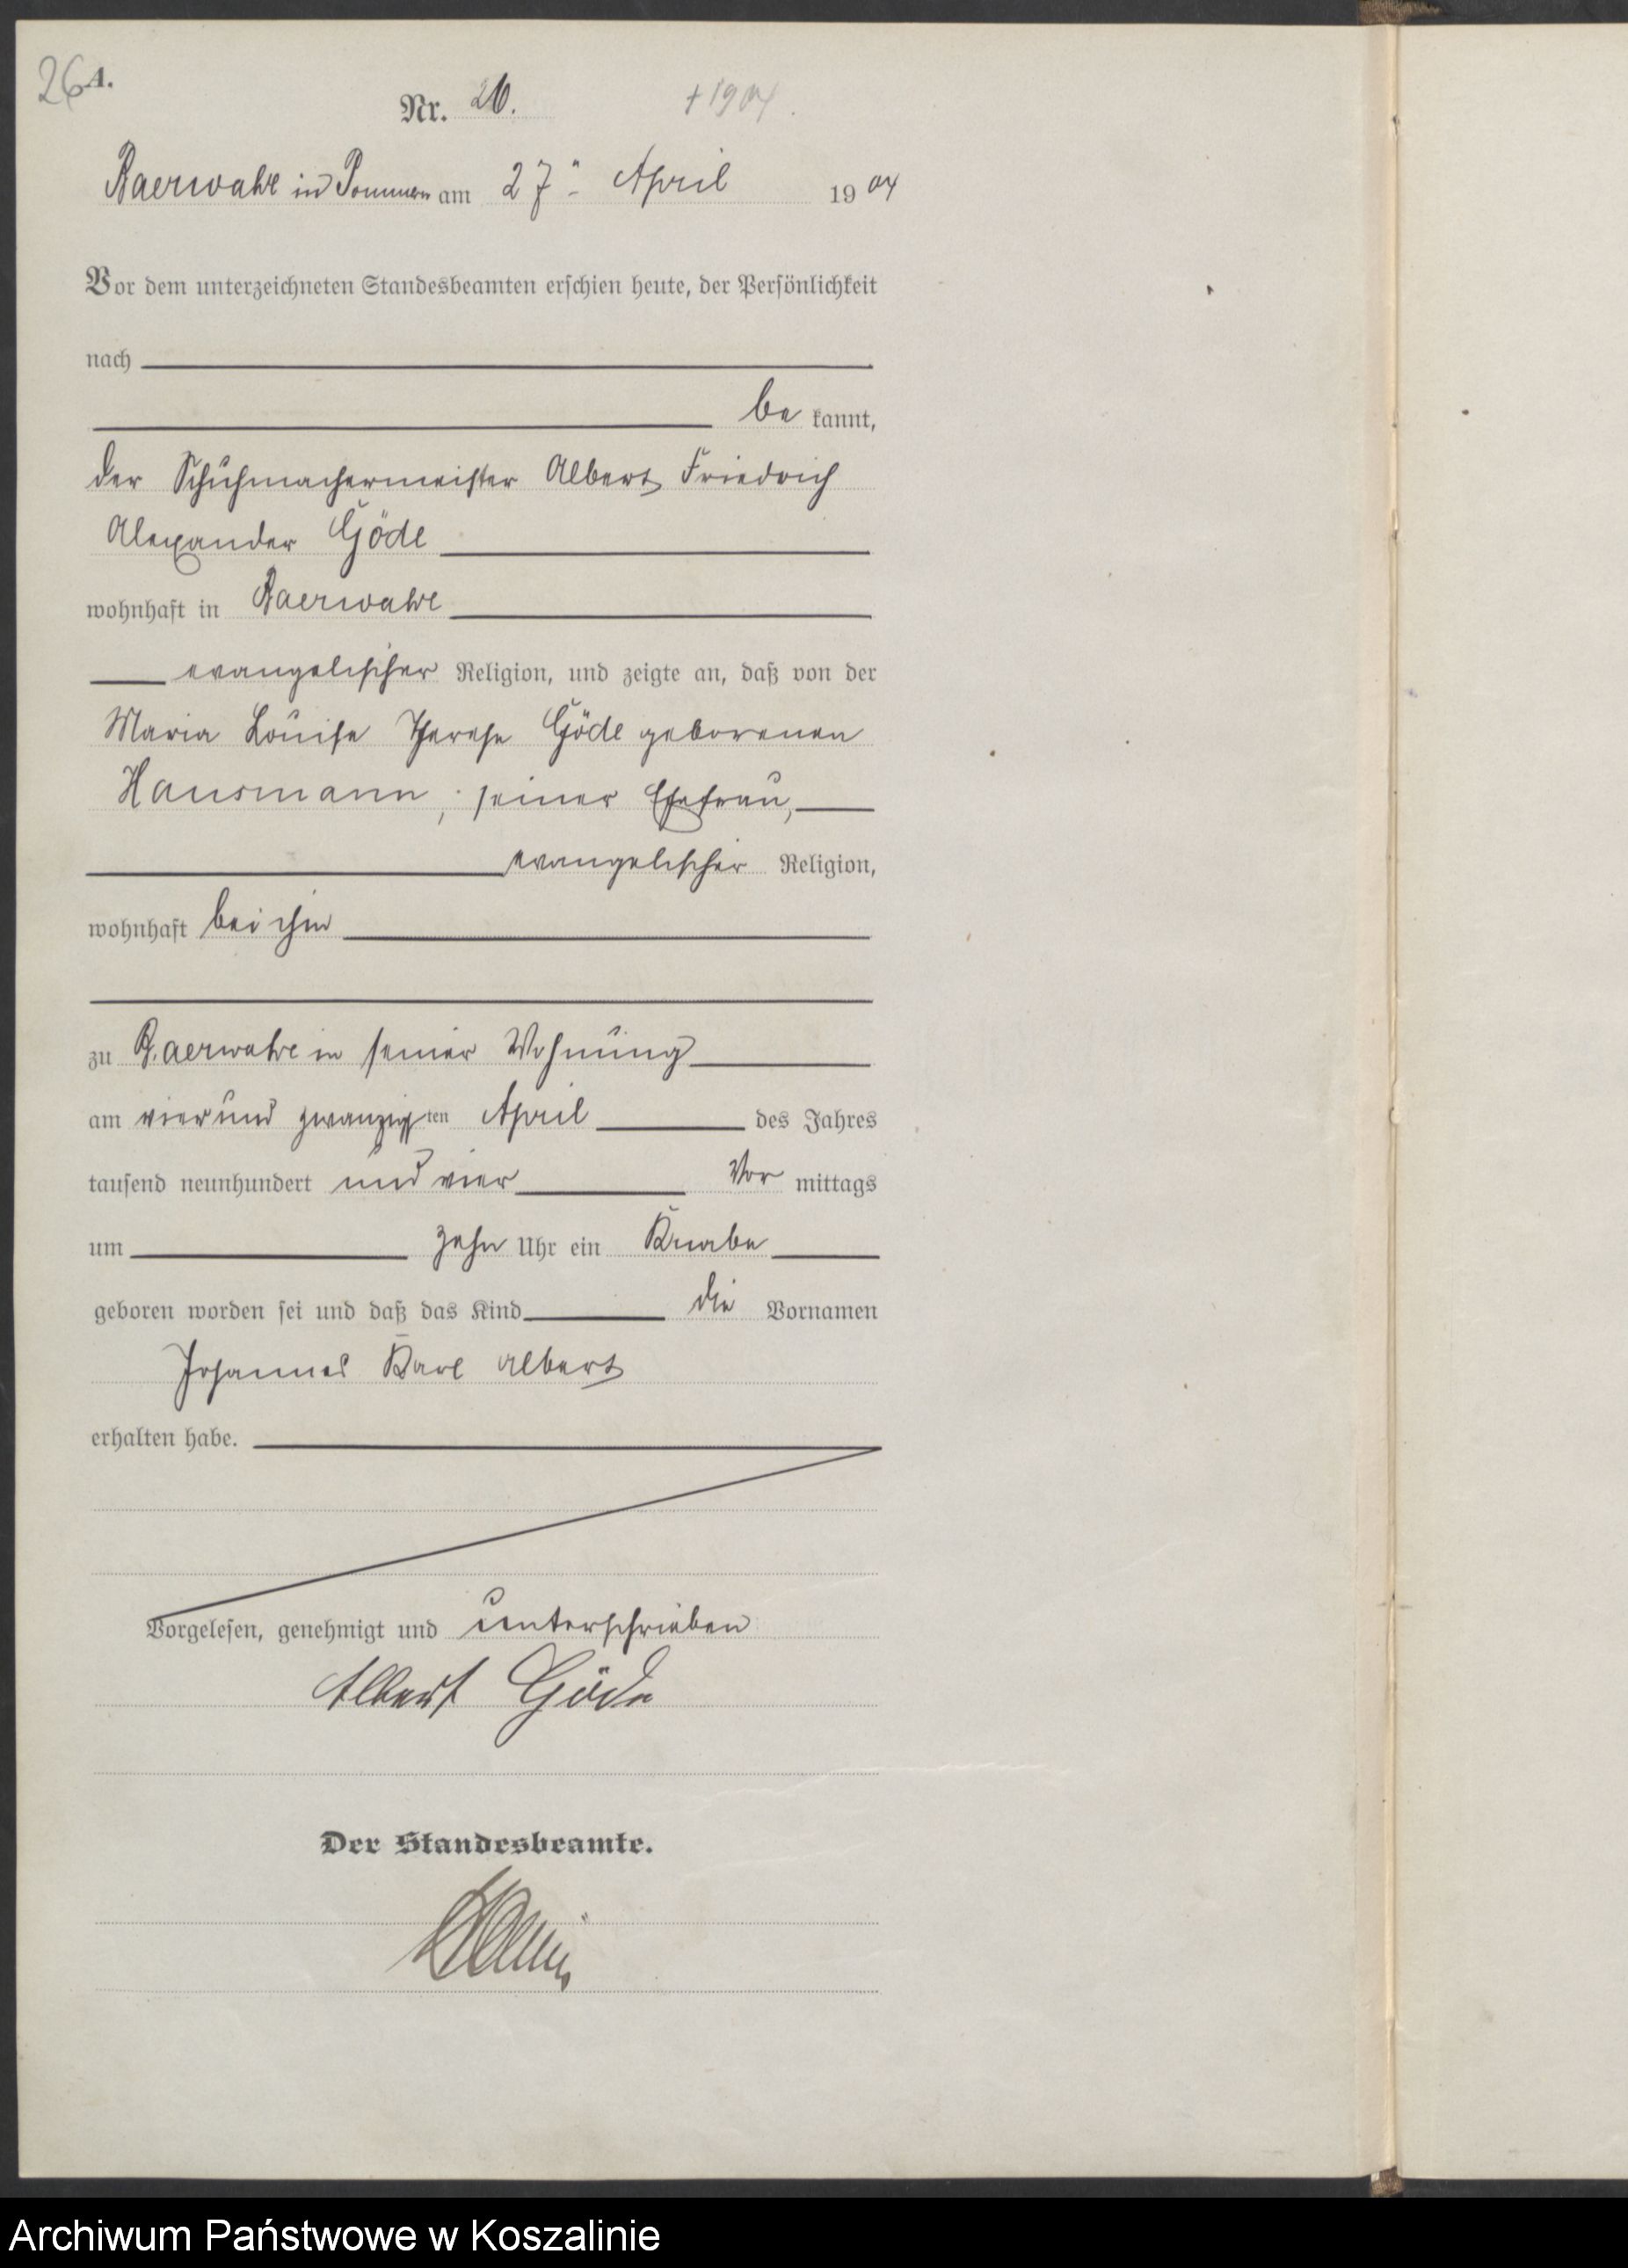 26 A.
Nr. 26. +1904.
Baerwalde in Pommern am 27ten April 1904
Vor dem unterzeichneten Standesbeamten erschien heute, der Persönlichkeit
nach
be kannt,
der Schuhmachermeister Albert Friedrich
Alexander Göde
wohnhaft in Baerwalde
evangelischer Religion, und zeigte an, daß von der
Maria Louise Therese Göde geborenen
Hausmann, seiner Ehefrau,
evangelischer Religion,
wohnhaft bei ihm
zu Baerwalde in seiner Wohnung
am vierund zwanzigsten April des Jahres
tausend neunhundert und vier Vor mittags
um zehn Uhr ein Knabe
geboren worden sei und daß das Kind die Vornamen
Johannes Karl Albert
erhalten habe.
Vorgelesen, genehmigt und unterschrieben
Albert Göde
Der Standesbeamte.
Archiwum Państwowe w Koszalinie